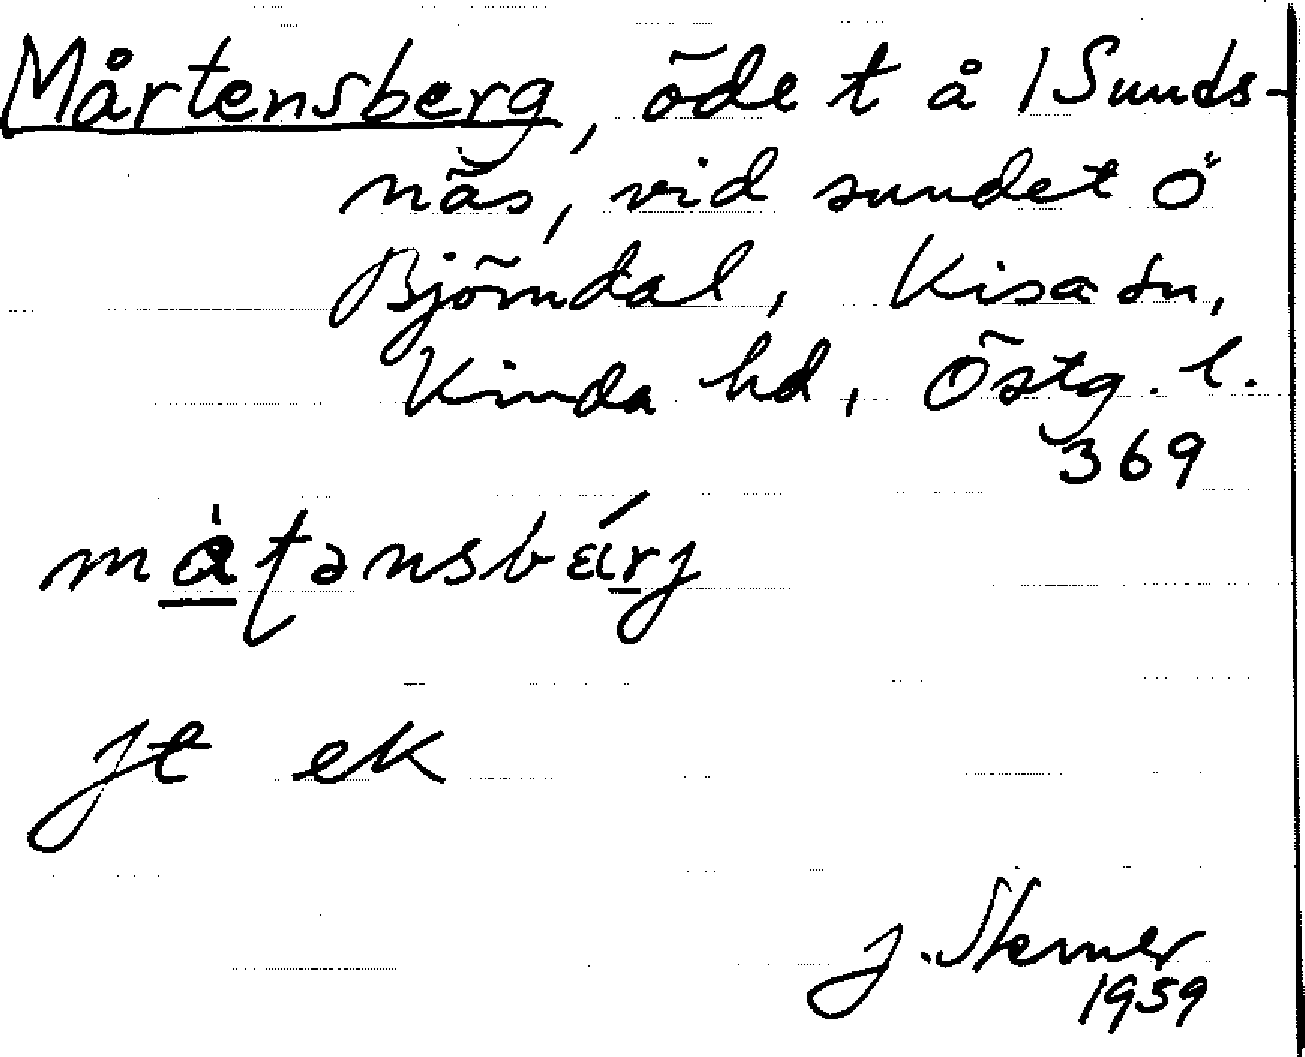 Mårtensberg, öde t å 1 Sunds-
näs, vid sundet ö
Björndal, Kisa sn,
Kinda hd, Östg. l.
369
jt ek
J. Sterner
1959